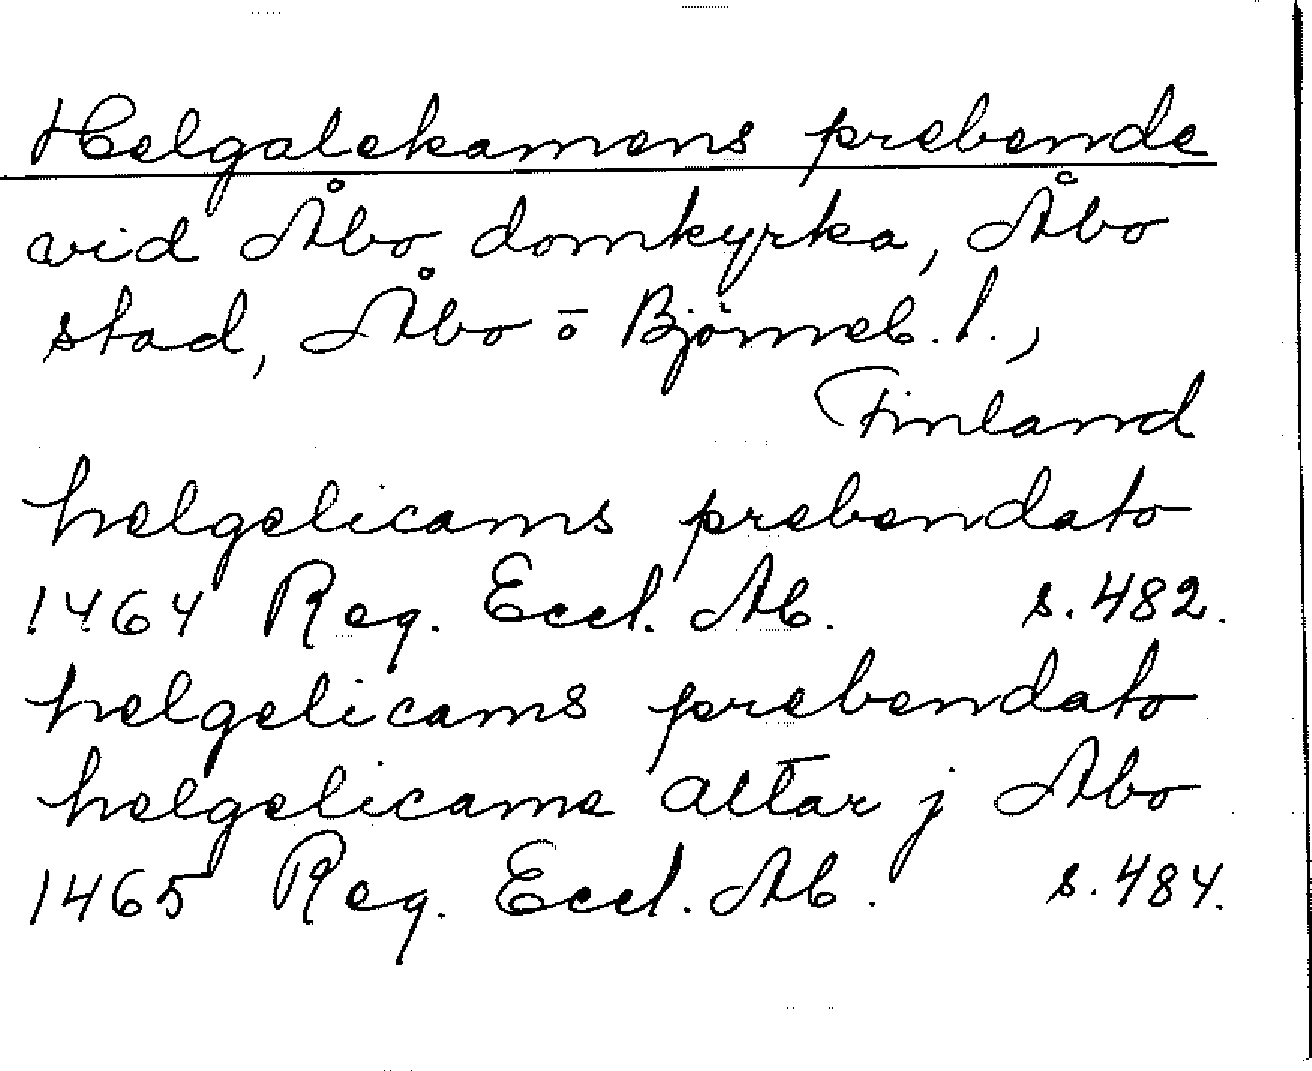 Helgalekamens prebende
vid Åbo domkyrka, Åbo
stad, Åbo o Björneb. l.,
Finland
helgelicams prebendato
1464 Reg. Eccl. Ab. s. 482.
helgelicams prebendato
helgelicame altar j Abo
1465 Reg. Eccl. Ab. s. 484.